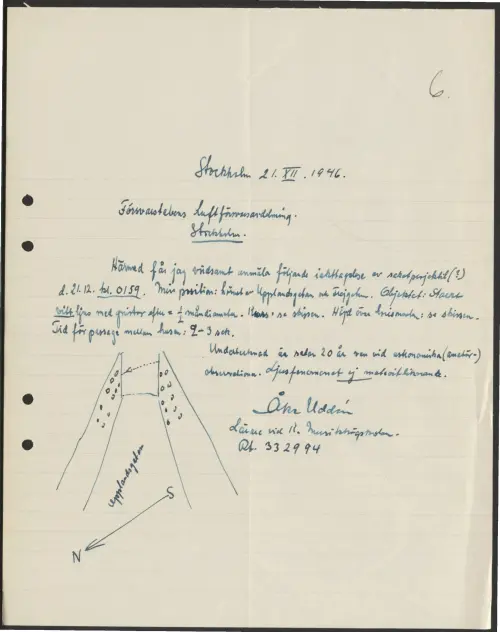 6.
Stockholm 21. XII. 1946.
Försvarsstabens Luftförsvarsavdelning.
Stockholm.
Härmed får jag vördsamt anmäla följande iakttagelse av raketprojektil(?)
d. 21.12. kl. 0159. Min position: hörnet av Upplandsgatan och Objektet: Starkt
vitt ljus med efter = ½ måndiameter. Kurs: se skissen. Höjd över: se skissen.
Tid för passage mellan husen: 2-3 sek.
Undertecknad är sedan 20 år van vid astronomiska (amatör-)
observationer. Ljusfenomenet ej meteorliknande.
Åke Uddén
Lärare vid K. Musikhögskolan.
Rt. 332994
Upplandsgatan
S
N